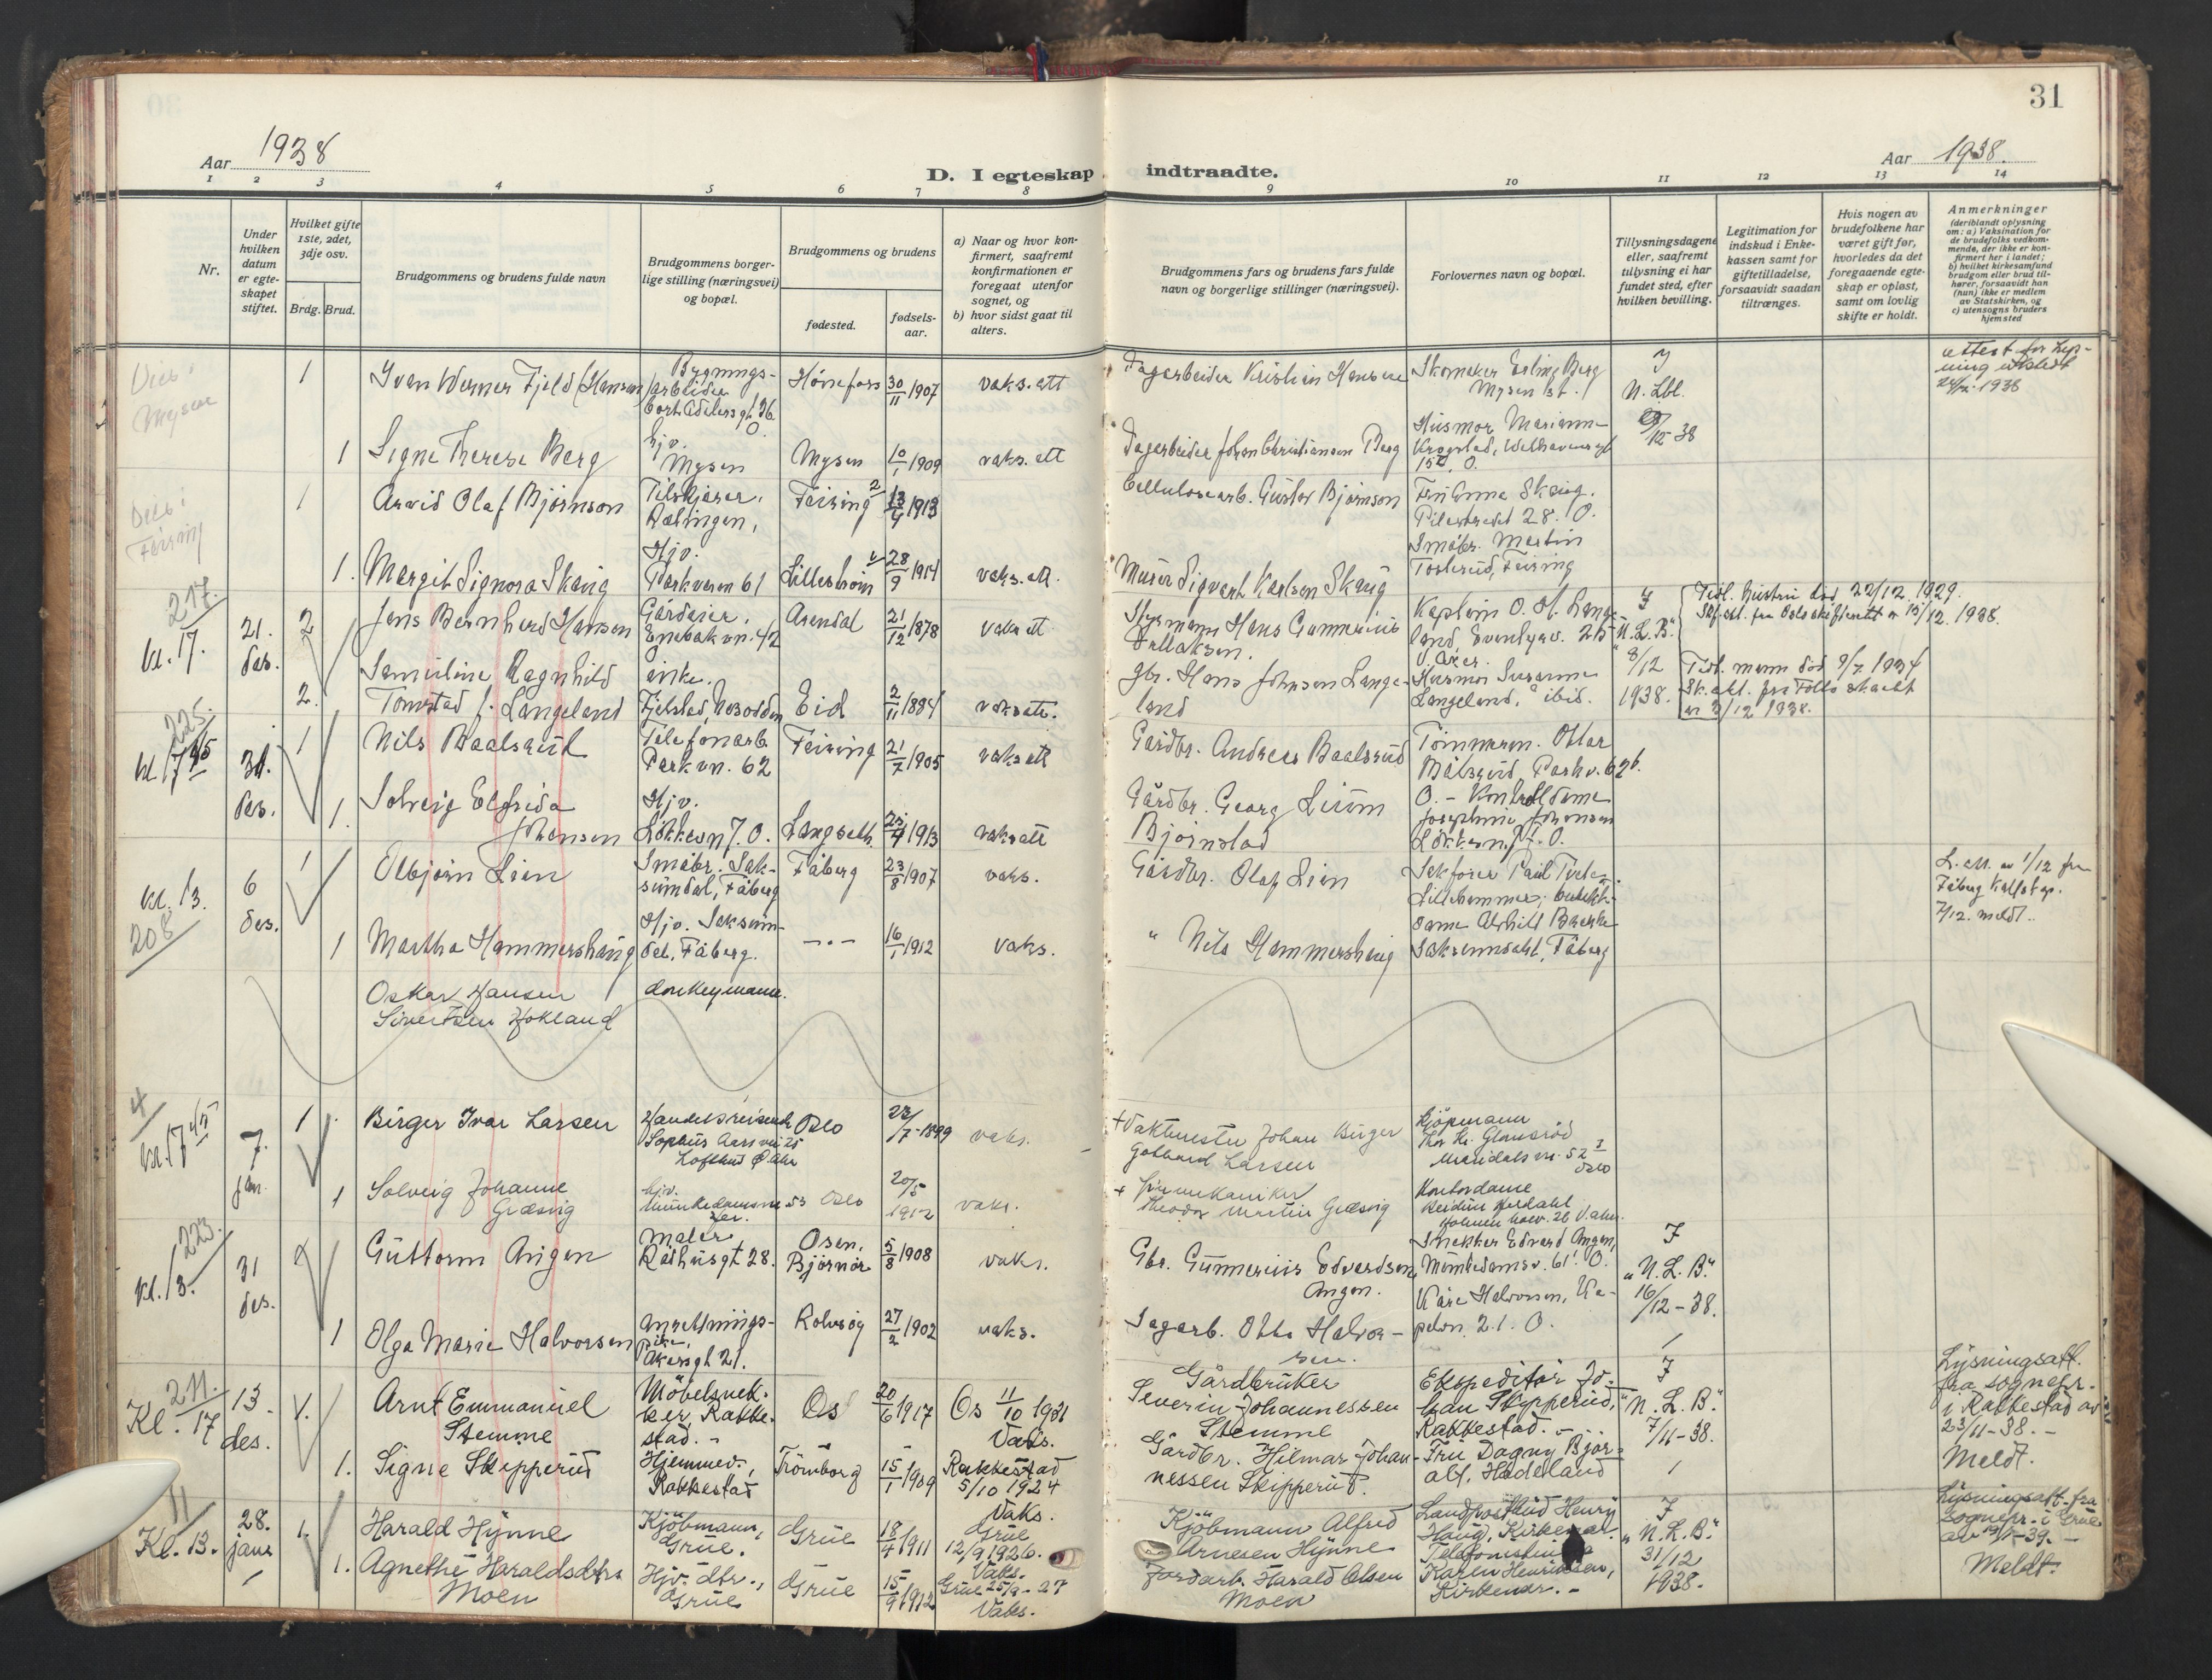 31
Aar 1938
D. I egteskap indtraadte.
Aar 1938.
1 2 3 4 5 6 7 8 9 10 11 12 13 14
Nr.
Under hvilken datum er egteskapet stiftet.
Hvilket gifte 1ste, 2det, 3dje osv.
Brdg. Brud.
Brudgommens og brudens fulde navn
Brudgommens borgerlige stilling (næringsvei) og bopæl.
Brudgommens og brudens
fødested.
fødselsaar.
a) Naar og hvor konfirmert, saafremt konfirmationen er foregaat utenfor sognet, og
b) hvor sidst gaat til alters.
Brudgommens fars og brudens fars fulde navn og borgerlige stillinger (næringsvei).
Forlovernes navn og bopæl.
Tillysningsdagene eller, saafremt tillysning ei har fundet sted, efter hvilken bevilling.
Legitimation for indskud i Enkekassen samt for giftetilladelse, forsaavidt saadan tiltrænges.
Hvis nogen av brudefolkene har været gift før, hvorledes da det foregaaende egteskap er opløst, samt om lovlig skifte er holdt.
Anmerkninger (deriblandt oplysning om: a) Vaksination for de brudefolks vedkommende, der ikke er konfirmert her i landet; b) hvilket kirkesamfund brudgom eller brud tilhører, forsaavidt han (hun) ikke er medlem av Statskirken, og c) utensogns bruders hjemsted
Vies i Mysen
1
Ivan Werner Fjeld (Hansen)
Bygningsarbeider
Cort Adelersgt. 26 O.
Hønefoss
30/11 1907
vaks. att
Fagarbeider Kristian Hansen
Skomaker Erling Berg
Mysen st.
J
N. Lbl.
/12 38
attest for lysning utstedt
1938
1
Signe Therese Berg
hjv.
Mysen
Mysen
10/1 1909
vaks. att
Dagarbeider Johan Christiansen Berg
Husmor Marianne
Krogstad, Welhavensgt.
15 O.
Vies i Feiring
1
Arvid Olaf Bjørnson
Filskjærer,
Rælingen,
Feiring
13/4 1913
Cellulosearb. Gustav Bjørnson
Fru Anna Skaug.
Pilestredet 28. O.
1.
Margit Signora Skaug
Hjv.
Parkveien 61
Lillestrøm
28/9 1914
vaks. att.
Murer Sigvart Karlsen Skaug
Småbr. Martin
Tosterud, Feiring
217.
kl. 17.
21.
des.
2
Jens Bernhard Hansen
Gårdeier,
Enebakvn. 42
Arendal
21/12 1878
vaks att
Styrmann Hans Gunnerius
Kaptein O. H. Langeland, Eventyrv. 25
V. Aker.
J
"N. L. B."
8/12
1938.
Tidl. hustru død 22/12 1929.
Skf. att. fra Oslo skifterett av 15/12 1938.
2.
Samuline Ragnhild
Tomstad f. Langeland
enke.
Fjelstad, Nesodden
Eid
2/11 1884
vaks att.
gbr. Hans Johnsen Langeland
Husmor Susanne
Langeland, ibid.
Tidl. mann død 9/7 1934
Sk. att. fra Follo skrett
av 3/12 1938.
225.
kl. 17 45
31.
des.
1
Nils Baalsrud
Telefonarb.
Parkvn. 62
Feiring
21/7 1905
vaks att
Gårdbr. Andreas Baalsrud
Tømmerm. Ottar
Bålsrud, Parkv. 62 b.
1.
Solveig Elfrida
Johansen
Hjv.
Løkkevn 7. O.
Langseth
25/4 1913
vaks att
Gårdbr. Georg Linom
Bjørnstad
O. - Kontroldame
Josephine Johansen
Løkkevn. 7. O.
kl. 13.
208
6
des.
1
Olbjørn Lien
Småbr. Saksumdal, Fåberg
Fåberg
23/8 1907
vaks.
Gårdbr. Olaf Lien
Sakfører Paul
Lillehammer,
L. att. av 1/12 fra
Fåberg
7/12. meldt.
1
Martha Hammershaug
Hjv. Saksumdal, Fåberg.
- " -
16/1 1912
vaks.
" Nils Hammershaug
Saksumdahl, Fåberg
Oskar Hansen
Sivertsen Hokland
donkeymann.
4
kl. 17 45
7.
jan.
1
Birger Ivar Larsen
Handelsreisende
Sophus Aars vei 25
Lofthus Ø. Aker
Oslo
23/7-1899
vaks.
+ Vaktmester Johan Birger
Gotthard Larsen
Kjøpmann
Thor Kr. Glomsrød
Maridalsvn. 52 I
Oslo
1
Solveig Johanne
Græsvig
hjv.
Munkedamsvn 53
Oslo
20/5 1912
vaks.
+ Finmekaniker
Theodor Martin Græsvig
Kontordame
V. aker.
223.
kl. 13.
31
des.
Guttorm Angen
Maler
Rådhusgt 28.
Osen,
Bjørnør
5/8 1908
vaks.
Gbr. Gunnerius Edvardsen
Angen.
Snekker Edvard Angen,
Munkedamsv. 61. O.
J
"N. L. B."
16/12-38.
1
Olga Marie Halvorsen
Anretningspike,
Akersgt 21.
Rolvsøy
27/2 1902
vaks.
Sagarb. Otto Halvorsen.
Kåre Halvorsen,
21. O.
211.
Kl. 17
13.
des.
1.
Arnt Emmanuel
Stemme
Møbelsnekker, Rakkestad. -
Os
20/6 1917
Os 11/10 1931
Vaks.
Gårdbruker
Severin Johannessen
Stemme
Ekspeditør Johan Skipperud,
Rakkestad. -
J
"N. L. B."
7/11-38.
Lysningsatt.
fra sognepr.
i Rakkestad av
23/11-38. -
Meldt.
1.
Signe Skipperud
Hjemmev.,
Rakkestad
Trömborg
15/1 1909
Rakkestad
5/10 1924
Vaks.
Gårdbr. Hilmar Johannessen Skipperud.
Fru Dagny Bjør
Hadeland
11
Kl. 13.
28.
jan.
1.
Harald Hynne
Kjøbmann,
Grue.
Grue
18/4 1911
Grue
12/9 1926.
Vaks.
Kjøbmann Alfred
Arnesen Hynne
Landpostbud Henry
Haug, Kirkenær.
J
"N. L. B."
31/12
1938.
Lysningsatt. fra
sognepr. i Grue
av /1-39. -
Meldt.
1.
Agnethe Haraldsdtr.
Moen
Hjv. dtr.,
Grue
Grue
15/9 1912
Grue 25/9-27
Vaks.
Jordarb. Harald Olsen
Moen
Karen Henriksen,
Kirkenær. -